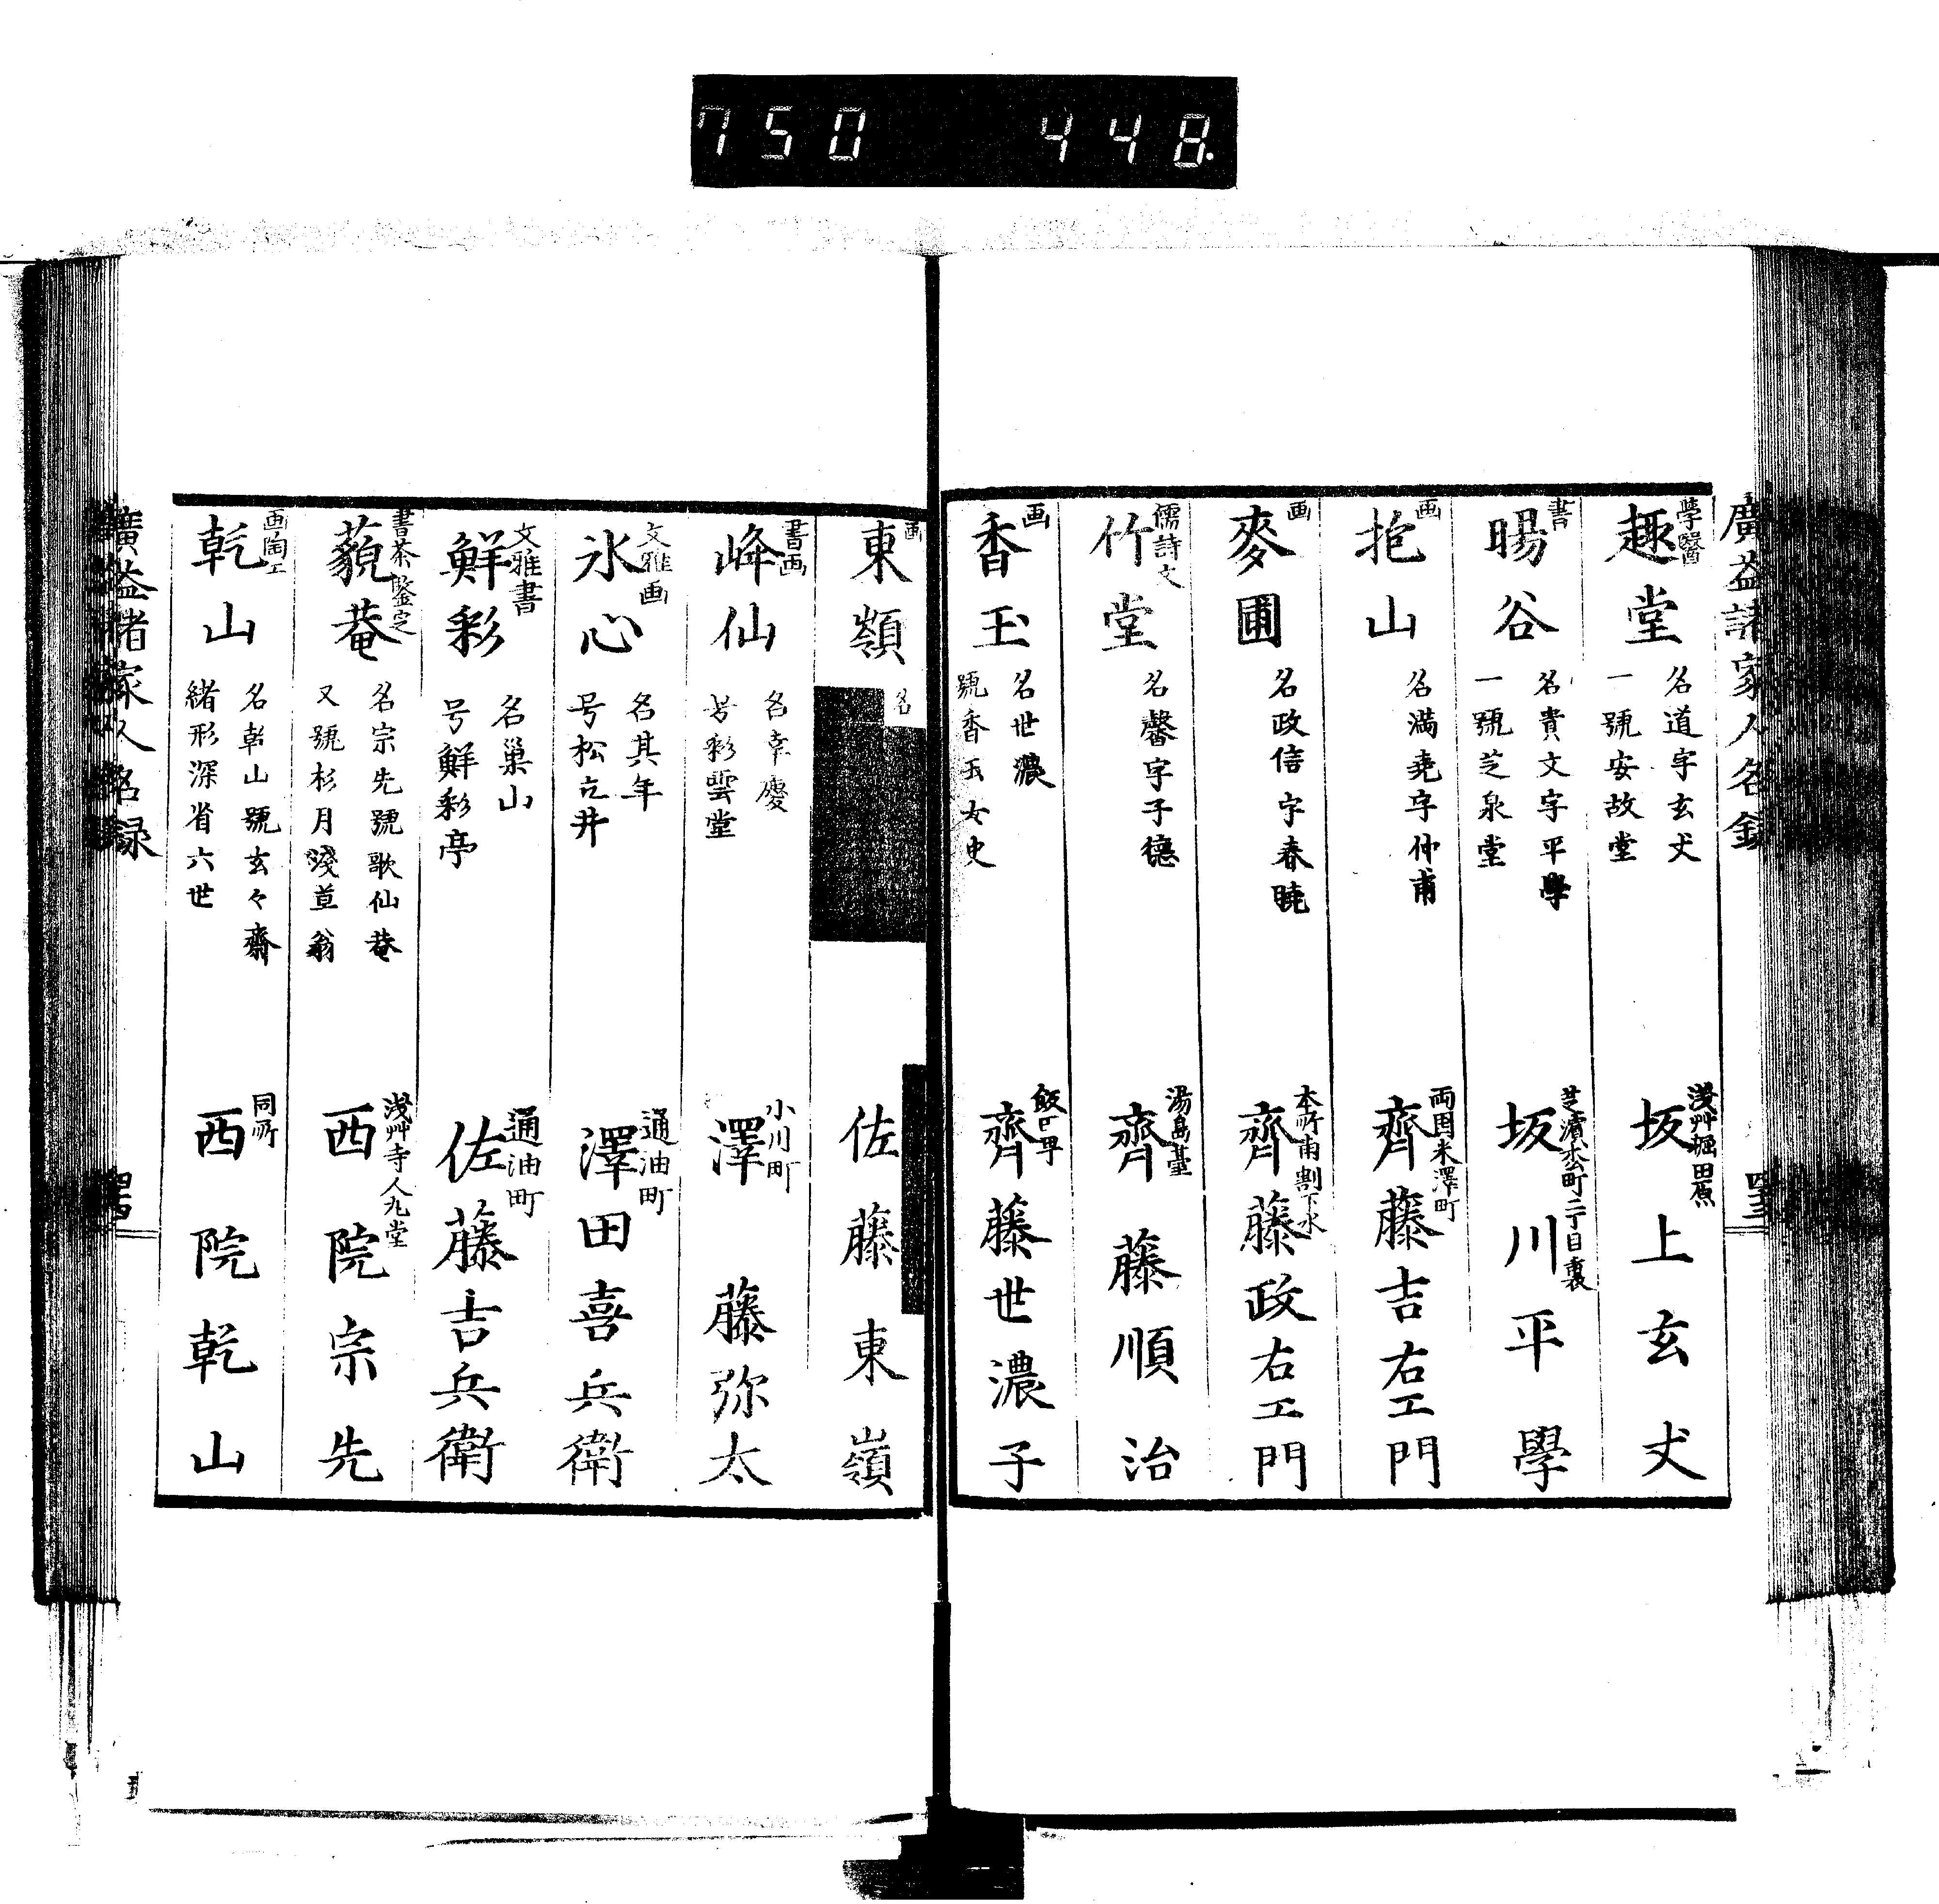 750 448.
廣益諸家人名録
學醫
趣堂
名道字玄丈
一號安故堂
淺艸堀田原
坂上玄丈
書
暘谷
名貴文字平學
一號芝泉堂
芝濱松町二丁目裏
坂川平學
画
抱山
名満尭字仲甫
両国米澤町
齊藤吉右エ門
画
麥圃
名政信字春暁
本所南割下水
齊藤政右エ門
儒詩文
竹堂
名馨字子德
湯島臺
齊藤順治
画
香玉
名世濃
號香玉女史
飯田町
齊藤世濃子
四十三
画
東嶺
名
佐藤東嶺
書画
峰仙
名幸慶
号彩雲堂
小川町
澤藤弥太
文雅画
氷心
名其年
号松㐂井
通油町
澤田喜兵衛
文雅書
鮮彩
名巢山
号鮮彩亭
通油町
佐藤吉兵衛
書茶鑒定
藐菴
名宗先號歌仙菴
又號杉月淺草翁
淺艸寺人丸堂
西院宗先
画陶工
乾山
名乾山號玄々齋
緒形深省六世
同所
西院乾山
廣益諸家人名録